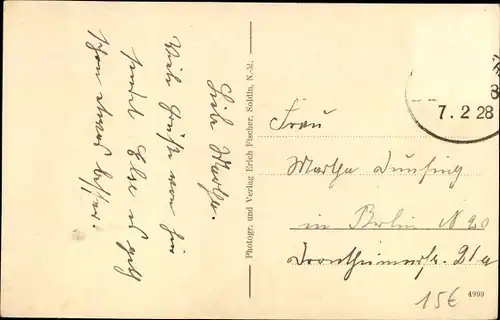 Liebe Martha.
Viele Grüße von hier
sendet Else es geht
schon etwas besser.
Photogr. und Verlag Erich Fischer, Soldin, N.-M.
7.2.28
Frau
Martha
in Berlin N 20
21a
15€
4990